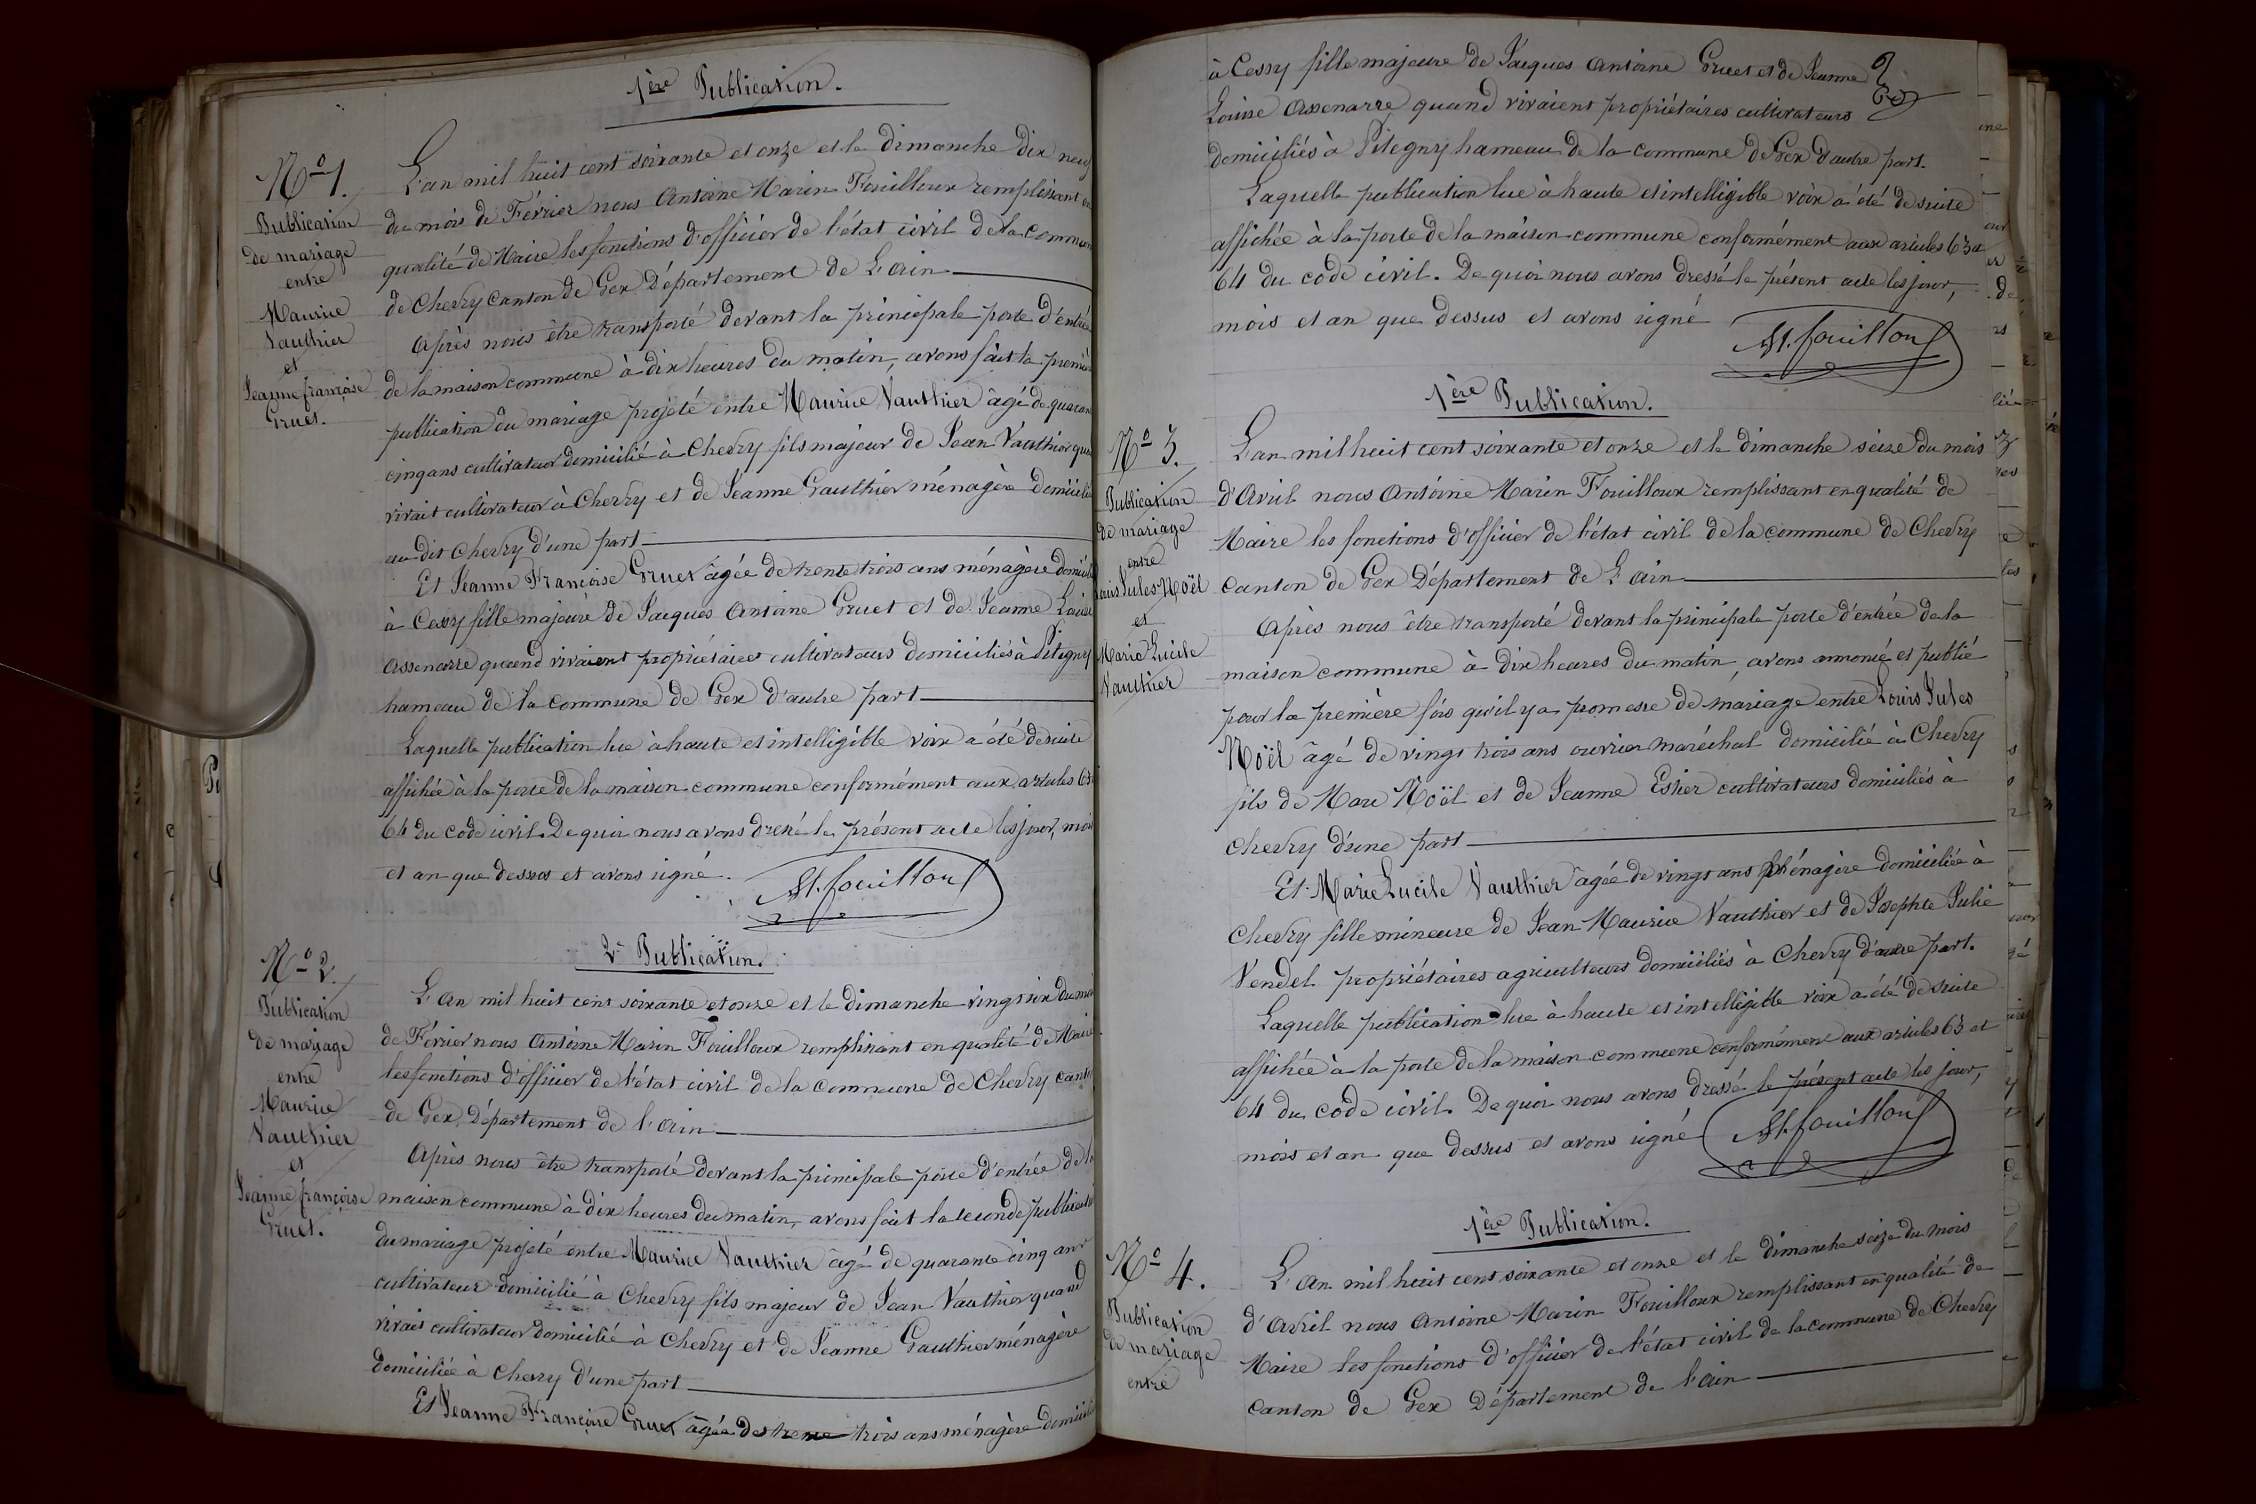 1ère Publication.
No 1.
Publication
de mariage
entre
Maurice
Vauthier
et
Jeanne françoise
Gruet.
L'an mil huit cent soixante et onze et le dimanche dix neuf
du mois de Février nous Antoine Marin Fouilloux remplissant en
qualité de Maire les fonctions d'officier de l'état civil de la commune
de Chevry canton de Gex Département de L'ain
Après nous être transporté devant la principale porte d'entrée
de la maison commune à dix heures du matin, avons fait la premiè
publication du mariage projeté entre Maurice Vauthier âgé de quaran
cinq ans cultivateur domicilié à Chevry fils majeur de Jean Vauthier qua
vivait cultivateur à Chevry et de Jeanne Gaulthier ménagère domicilié
au dit Chevry d'une part
Et Jeanne Françoise Gruet âgée de trente trois ans ménagère domicil
à Cessy fille majeure de Jacques Antoine Gruet et de Jeanne Louise
Assenarre quand vivaient propriétaires cultivateurs domiciliés à Pitegny
hameau de la commune de Gex d'autre part
Laquelle publication lue à haute et intelligible voix a été de suite
affichée à la porte de la maison commune conformément aux articles 63
64 du code civil. De quoi nous avons dressé le présent acte les jour, mois
et an que dessus et avons signé.
M. fouilloux
2e Publication.
No 2.
Publication
de mariage
entre
Maurice
Vauthier
et
Jeanne françoise
Gruet.
L'an mil huit cent soixante et onze et le dimanche vingt six du moi
de Février nous Antoine Marin Fouilloux remplissant en qualité de Maire
les fonctions d'officier de l'état civil de la commune de Chevry canto
de Gex Département de l'ain
Après nous être transporté devant la principale porte d'entrée de la
maison commune à dix heures du matin, avons fait la seconde publicati
du mariage projeté entre Maurice Vauthier âgé de quarante cinq ans
cultivateur domicilié à Chevry fils majeur de Jean Vauthier quand
vivait cultivateur domicilié à Chevry et de Jeanne Gaulthier ménagère
domiciliée à Chevry d'une part
Et Jeanne Françoise Gruet âgée de trente trois ans ménagère domicil
à Cessy fille majeure de Jacques Antoine Gruet et de Jeanne 2
Louise Assenarre quand vivaient propriétaires cultivateurs
domiciliés à Pitegny hameau de la commune de Gex d'autre part.
Laquelle publication lue à haute et intelligible voix a été de suite
affichée à la porte de la maison commune conformément aux articles 63 et
64 du code civil. De quoi nous avons dressé le présent acte les jour,
mois et an que dessus et avons signé
M. fouilloux
1ère Publication.
No 3.
Publication
de mariage
entre
Louis Jules Noël
et
Marie Lucile
Vauthier
L'an mil huit cent soixante et onze et le dimanche seize du mois
d'Avril nous Antoine Marin Fouilloux remplissant en qualité de
Maire les fonctions d'officier de l'état civil de la commune de Chevry
Canton de Gex Département de L'ain
Après nous être transporté devant la principale porte d'entrée de la
maison commune à dix heures du matin, avons annoncé et publié
pour la première fois qu'il y a promesse de mariage entre Louis Jules
Noël âgé de vingt trois ans ouvrier maréchal domicilié à Chevry
fils de Marc Noël et de Jeanne Estier cultivateurs domiciliés à
Chevry d'une part
Et Marie Lucile Vauthier âgée de vingt ans ménagère domiciliée à
Chevry fille mineure de Jean Maurice Vauthier et de Josephte Julie
Vendel propriétaires agriculteurs domiciliés à Chevry d'autre part.
Laquelle publication lue à haute et intelligible voix a été de suite
affichée à la porte de la maison commune conformément aux articles 63 et
64 du code civil. De quoi nous avons dressé le présent acte les jour,
mois et an que dessus et avons signé
M. fouilloux
1ère Publication.
No 4.
Publication
de mariage
entre
L'an mil huit cent soixante et onze et le dimanche seize du mois
d'Avril nous Antoine Marin Fouilloux remplissant en qualité de
Maire les fonctions d'officier de l'état civil de la commune de Chevry
Canton de Gex Département de l'ain